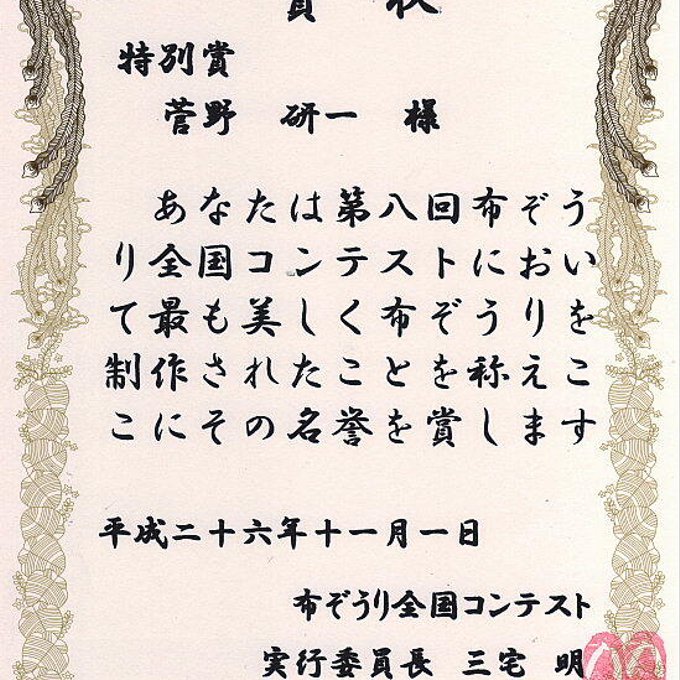 賞状
特別賞
菅野 研一 様
あなたは第八回布ぞう
り全国コンテストにおい
て最も美しく布ぞうりを
制作されたことを称えこ
こにその名誉を賞します
平成二十六年十一月一日
布ぞうり全国コンテスト
実行委員長 三宅 明